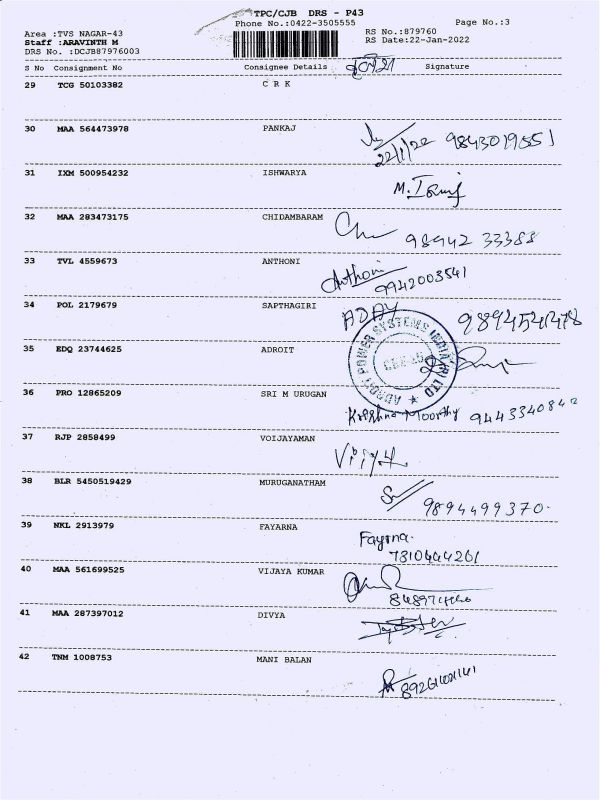 TPC/CJB DRS - P43
Phone No.:0422-3505555
Page No.:3
Area :TVS NAGAR-43
RS No.:879760
Staff :ARAVINTH M
RS Date:22-Jan-2022
DRS No. :DCJB87976003
S No Consignment No Consignee Details Signature
29 TCG 50103382 C R K
30 MAA 564473978 PANKAJ
22/1/22 9843019551
31 IXM 500954232 ISHWARYA
32 MAA 283473175 CHIDAMBARAM
98942 33388
33 TVL 4559673 ANTHONI
Anthoni 9942003541
34 POL 2179679 SAPTHAGIRI
35 EDQ 23744625 ADROIT
ADROIT POWER SYSTEMS INDIA (P) LTD
36 PRO 12865209 SRI M URUGAN
Krishna Moorthy 9443340842
37 RJP 2858499 VOIJAYAMAN
38 BLR 5450519429 MURUGANATHAM
9894499370.
39 NKL 2913979 FAYARNA
Fayrna.
7810444261
40 MAA 561699525 VIJAYA KUMAR
41 MAA 287397012 DIVYA
42 TNM 1008753 MANI BALAN